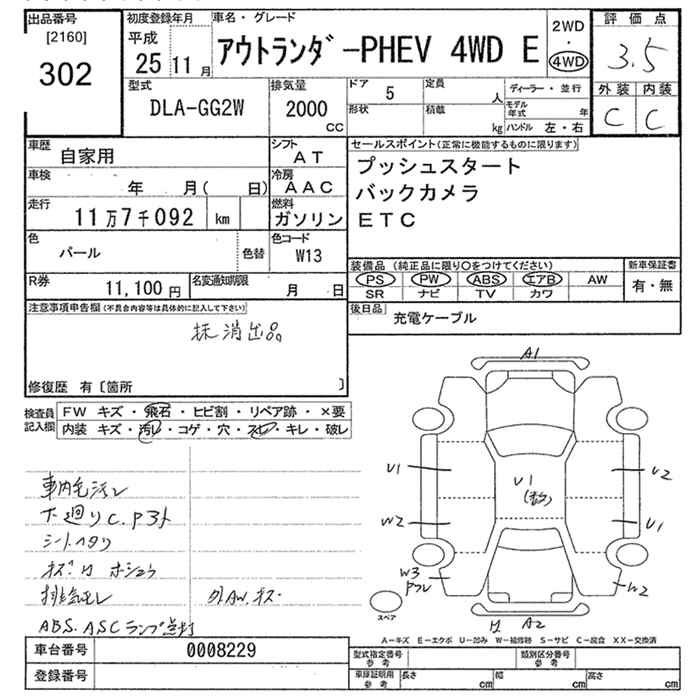 出品番号
[2160]
302
初度登録年月
平成
25 11 月
車名・グレード
アウトランダーPHEV 4WD E
2WD
・
4WD
評価点
3.5
外装 内装
C C
型式
DLA-GG2W
排気量
2000
CC
ドア 5
定員
人
形状
積載
kg
ディーラー・並行
モデル年式 年
ハンドル 左・右
車歴
自家用
シフト
AT
車検
年 月( 日)
冷房
AAC
走行
11万7千092 km
燃料
ガソリン
色
パール
色替
色コード
W13
R券
11,100 円
名変通知期限
月 日
セールスポイント(正常に機能するものに限ります)
プッシュスタート
バックカメラ
ETC
装備品(純正品に限り○をつけてください)
PS PW ABS エアB AW
SR ナビ TV カワ
新車保証書
有・無
後日品
充電ケーブル
注意事項申告欄(不具合内容等は具体的に記入して下さい)
抹消出品
修復歴 有〔箇所 〕
検査員記入欄
FW キズ・飛石・ヒビ割・リペア跡・×要
内装 キズ・汚レ・コゲ・穴・スレ・キレ・破レ
車内毛汚レ
下廻りC.Pヌケ
シートヘタリ
キズ凹ホシュウ
排気モレ
外AW.キズ
ABS.ASCランプ点灯
A1
U1
U1
(多数)
U2
W2
U1
W3
W2
A2
スペア
A-キズ E-エクボ U-凹み W-補修跡 S-サビ C-腐食 XX-交換済
車台番号
0008229
登録番号
型式指定番号
参考
類別区分番号
参考
車庫証明用
参考
長さ cm
幅 cm
高さ cm